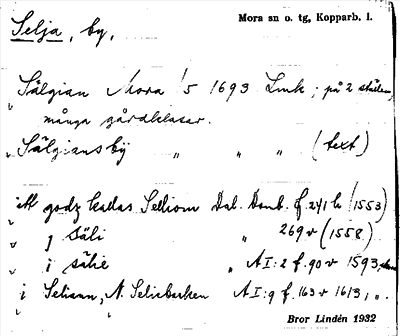 Selja, by,
Mora sn o. tg, Kopparb. l.
Sälgian Mora 1/5 1693 Lmk; på 2 ställen,
många gårdklasar.
Sälgians by " " " (text)
itt godz kallas Selliom Dal. Domb. f. 241 b (1553)
j Säli " 269 v (1558)
i sälie " A I:2 f. 90 v 1593,
i Seliann, N. Seliebacken A I:9 f. 163 v 1613, ".
Bror Lindén 1932